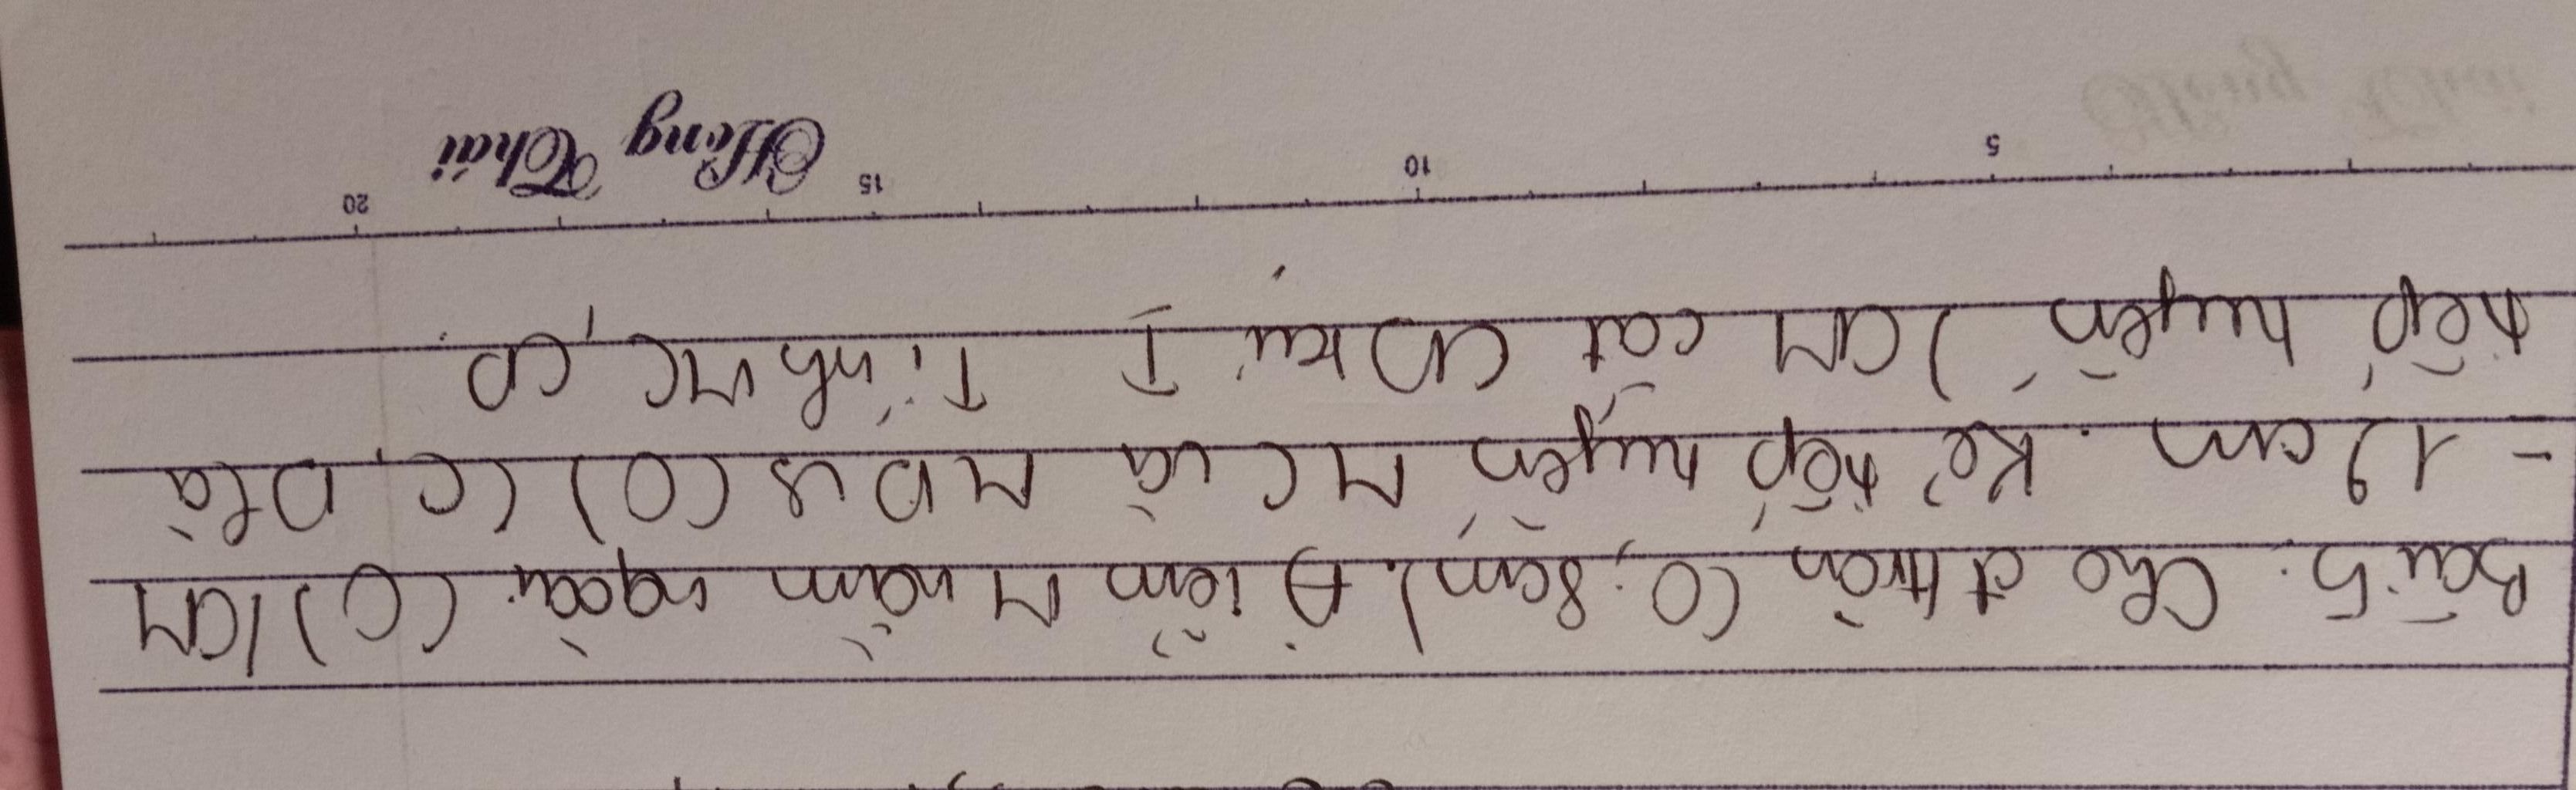 Bài 5: Cho đt tròn (O; 8cm). Điểm M nằm ngoài (O) / OM
= 17 cm. Kẻ tiếp tuyến MC và MD với (O) (C, D là
tiếp tuyến) OM cắt CD tại I. Tính MC, CD.
5 10 15 20
Hồng Thái